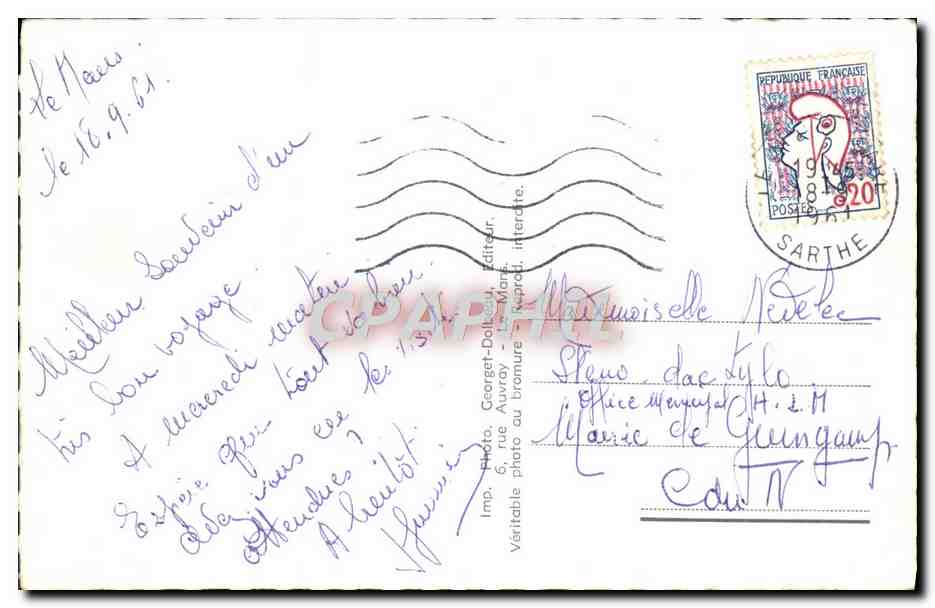 Le Mans.
le 18.9.61.
Meilleur souvenir d'un
très bon voyage.
A mercredi matin
Espère que tout
ce les
attendues ?
A bientôt.
Imp. Photo. Georget-Dolbeau, Editeur.
6, rue Auvray - Le Mans.
Véritable photo au bromure - Reprod. interdite.
CPAPHIL
REPUBLIQUE FRANÇAISE
POSTES
0,20
19 45
18-9
1961
SARTHE
Mademoiselle Nedelec
Steno dactylo
Office Municipal H.L.M
Mairie de Guingamp
C du N